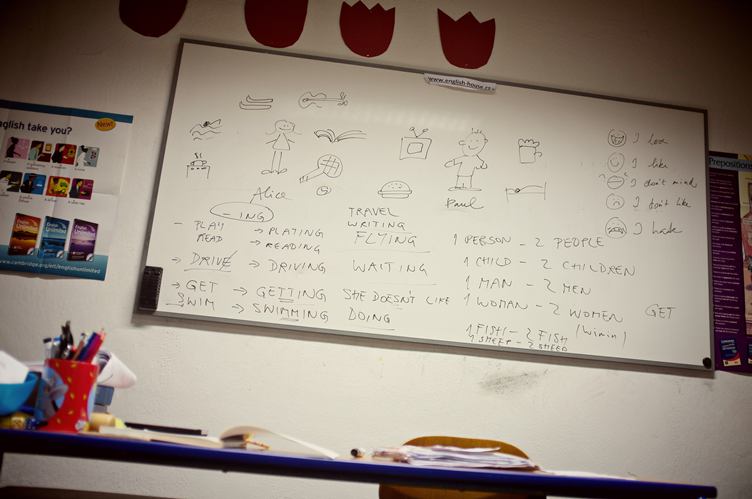 www.english-house.cz
I love
I like
I don't mind
I don't like
I hate
Alice
Paul
- ING
- PLAY → PLAYING
READ → READING
→ DRIVE → DRIVING
→ GET → GETTING
→ SWIM → SWIMMING
TRAVEL
WRITING
FLYING
WAITING
SHE DOESN'T LIKE
DOING
1 PERSON - 2 PEOPLE
1 CHILD - 2 CHILDREN
1 MAN - 2 MEN
1 WOMAN - 2 WOMEN
(wimin)
1 FISH - 2 FISH
1 SHEEP - 2 SHEEP
GET
glish take you?
New!
English
Unlimited
www.cambridge.org/elt/englishunlimited
Prepositions